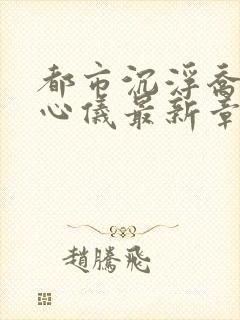 都市沉浮喬
心儀最新章
趙騰飛